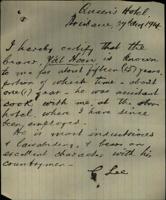 Queen's Hotel,
Brisbane, 27th Aug 1914.
I hereby certify that the
bearer, Yee Hoon is known
to me for about fifteen (15) years,
portion of which time - about
one (1) year - he was assistant
cook with me, at the above
hotel, where I have since
been employed.
He is most industrious
& law abiding, & bears an
excellent character with his
countrymen
C Lee